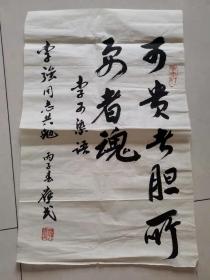 可贵者胆所
要者魂
李可染语
李强同志共勉
丙子春